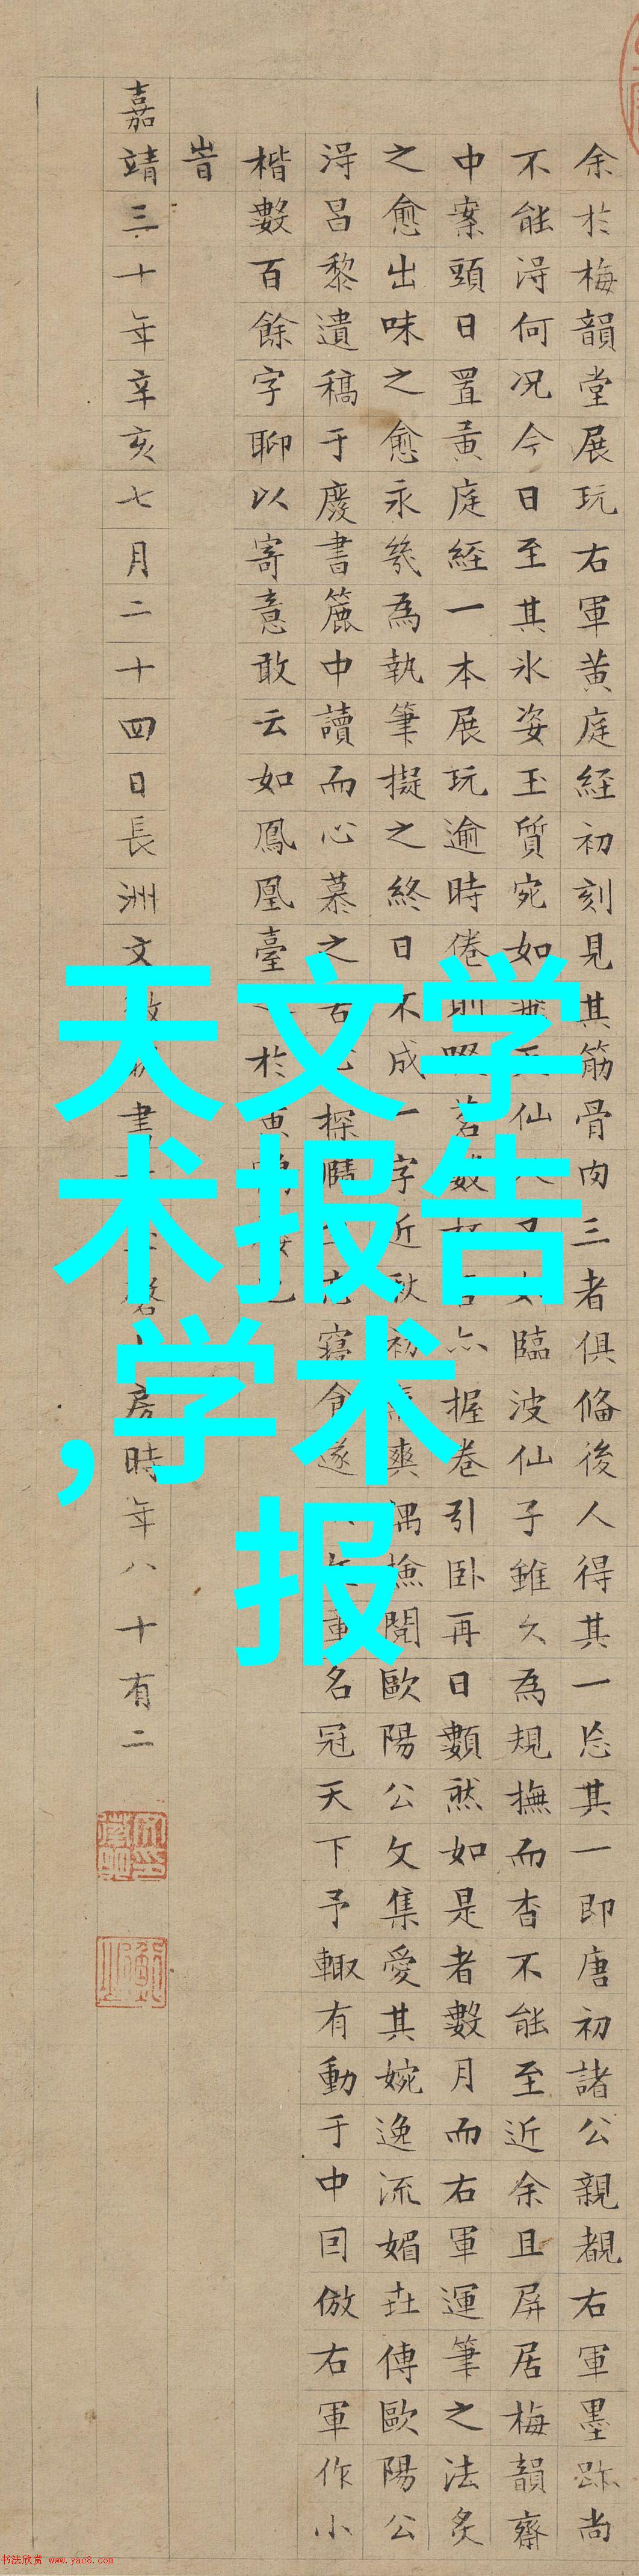 余於梅韻堂展玩右軍黄庭経初刻見其筋骨肉三者俱俻後人得其一忘其一即唐初諸公親覩右軍墨跡尚
不能淂何况今日至其氷姿玉質宛如仙臨波仙子雖久為規撫而杳不能至近余且屏居梅韻齋
中案頭日置黄庭経一本展玩逾時倦則啜茗數握卷引卧再日數然如是者數月而右軍運筆之法炙
之愈出味之愈永幾為執筆擬之終日不成一字近秋初爽偶撿閱歐陽公文集愛其婉逸流媚共傳歐陽公
淂吕黎遺稿于廢書簏中讀而心慕之探賾寢食遂名冠天下予輙有動于中因倣右軍作小
楷數百餘字聊以寄意敢云如鳳凰臺於黄
旹
嘉靖三十年辛亥七月二十四日長洲文徵明書房時年八十有二
天文学
术报告
,学术
报
书法欣赏 www.yac8.com